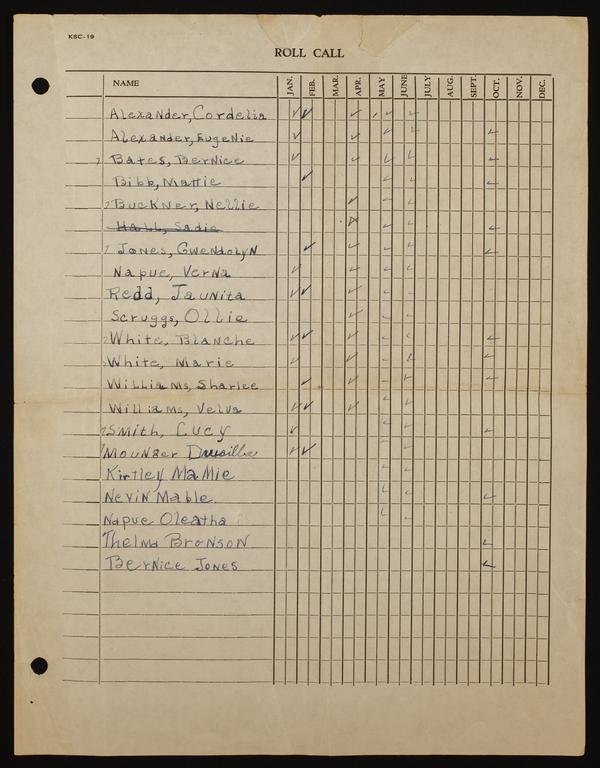 KSC-19
ROLL CALL
NAME JAN. FEB. MAR. APR. MAY JUNE JULY AUG. SEPT. OCT. NOV. DEC.
Alexander, Cordelia
Alexander, Eugenie
? Bates, Bernice
Bibb, Mattie
? Buckner, Nellie
Hall, Sadie
? Jones, Gwendolyn
Napue, Verna
Redd, Jaunita
Scruggs, Ollie
? White, Blanche
? White, Marie
Williams, Sharlee
Williams, Velva
? Smith, Lucy
? Mounger Drusilla
Kirtley Mamie
Nevin Mable
Napue Oleatha
Thelma Bronson
Bernice Jones